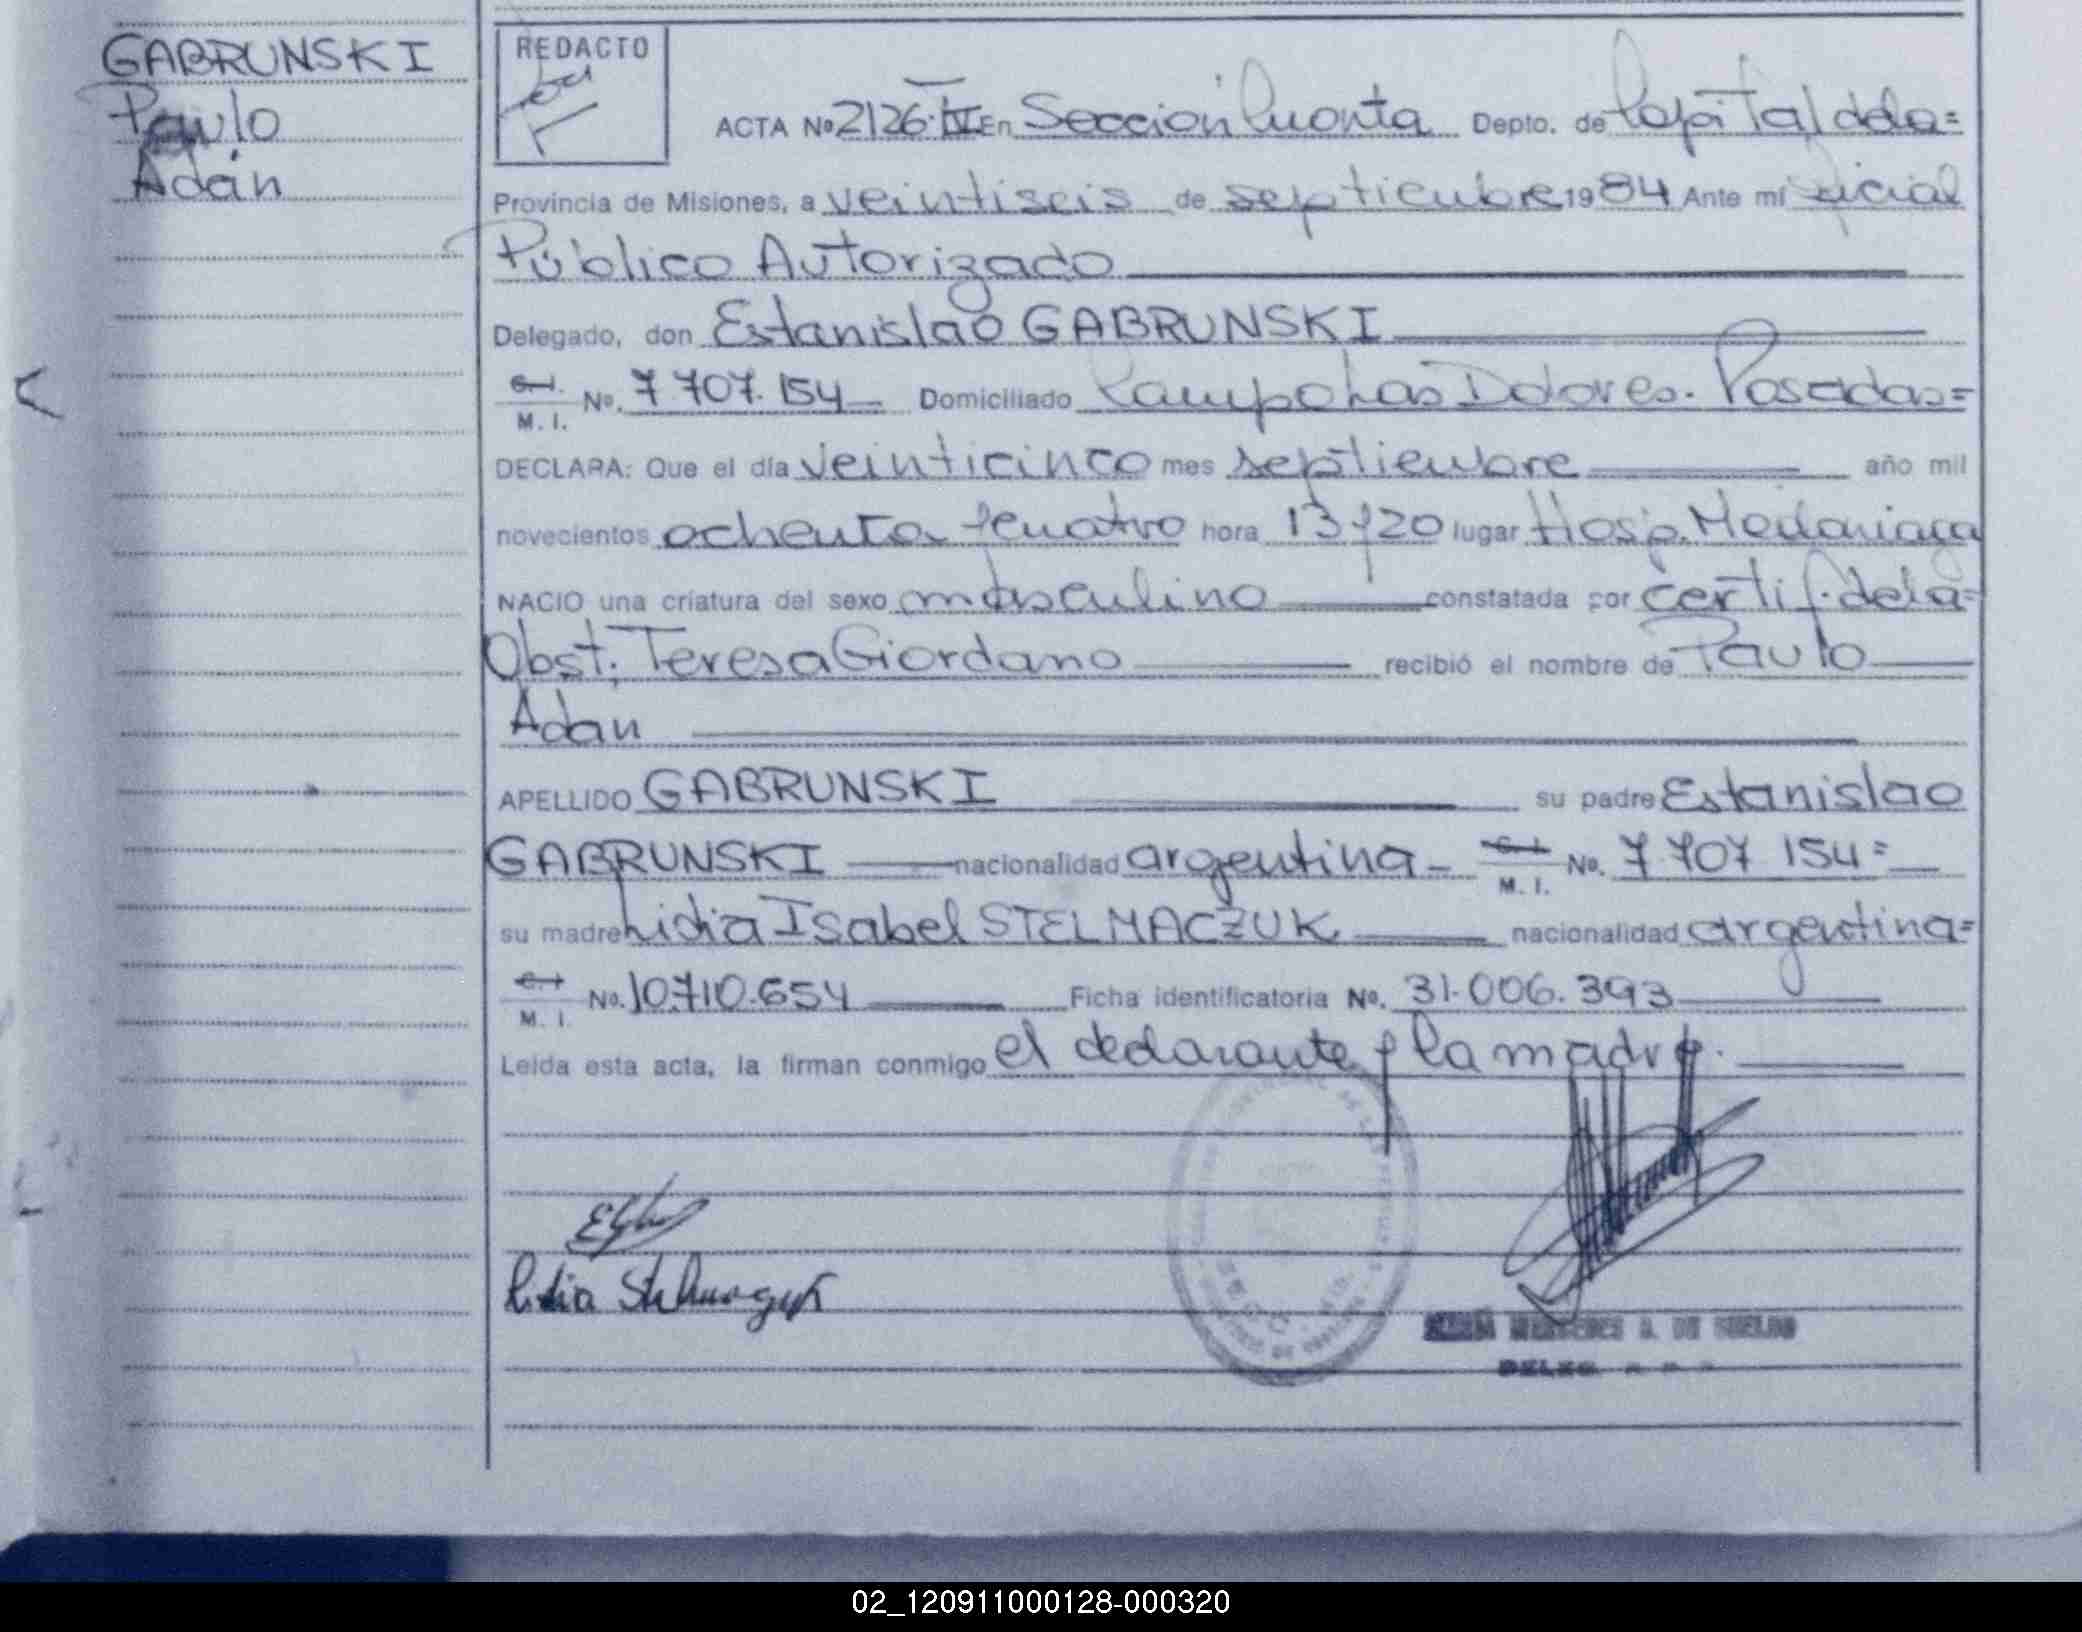 GABRUNSKI
Paulo
Adán
REDACTO
ACTA Nº 2126·IV En Sección Cuarta Depto. de Capital de la=
Provincia de Misiones, a veintiseis de septiembre 1984 Ante mí Oficial
Público Autorizado
Delegado, don Estanislao GABRUNSKI
C.I.
M. I. Nº. 7 707.154 Domiciliado Campo Las Dolores. Posadas=
DECLARA: Que el día veinticinco mes septiembre año mil
novecientos ochenta y cuatro hora 13 y 20 lugar Hosp. Madariaga
NACIO una criatura del sexo masculino constatada por certif. de la=
Obst. Teresa Giordano recibió el nombre de Paulo
Adan
APELLIDO GABRUNSKI su padre Estanislao
GABRUNSKI nacionalidad argentina C.I. M. I. Nº. 7.707 154=
su madre Lidia Isabel STELMACZUK nacionalidad argentina=
C.I. M. I. Nº. 10.710.654 Ficha identificatoria Nº. 31.006.393
Leída esta acta, la firman conmigo el declarante y la madre.
Lidia Stelmaczuk
MERCEDES A. DE SUELDO
DELEG
02_120911000128-000320